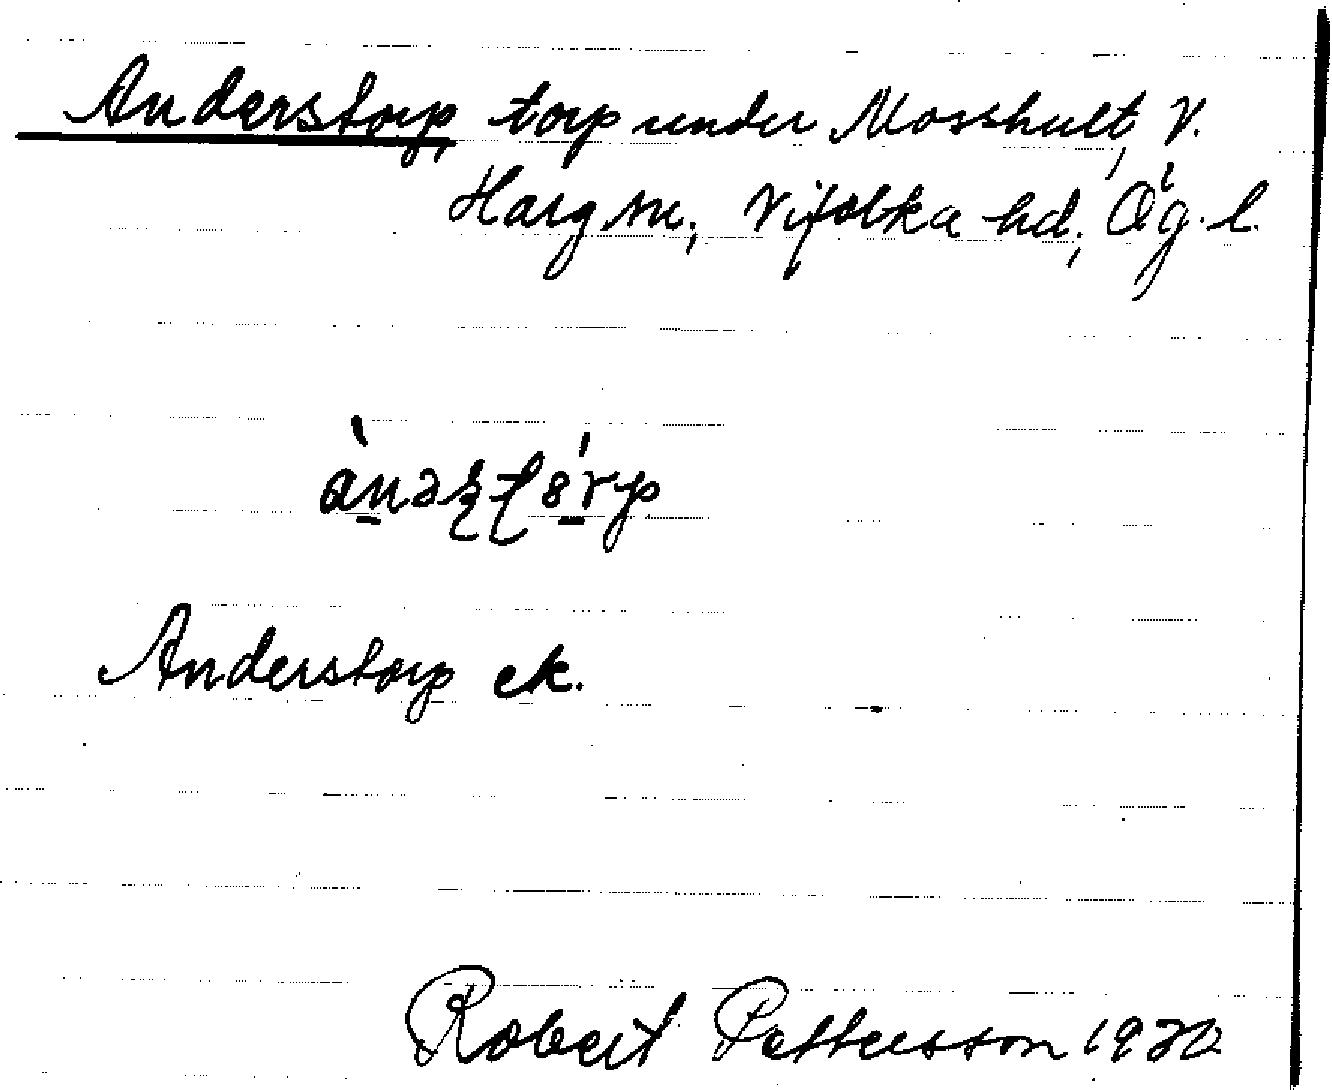 Anderstorp, torp under Mosshult, V.
Harg sn., Vifolka hd., Ög. l.
Anderstorp ek.
Robert Pettersson 1920